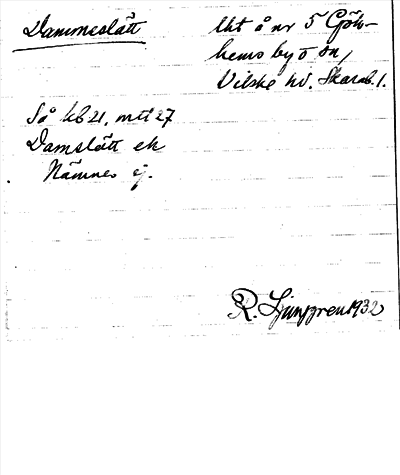 Dammeslätt
Uht å nr 5 Göte-
hems by ö sn,
Vilske hd. Skarab. l.
Så hb 21, mtl 27
Damslätt ek
Nämnes ej.
R. Ljunggren 1932